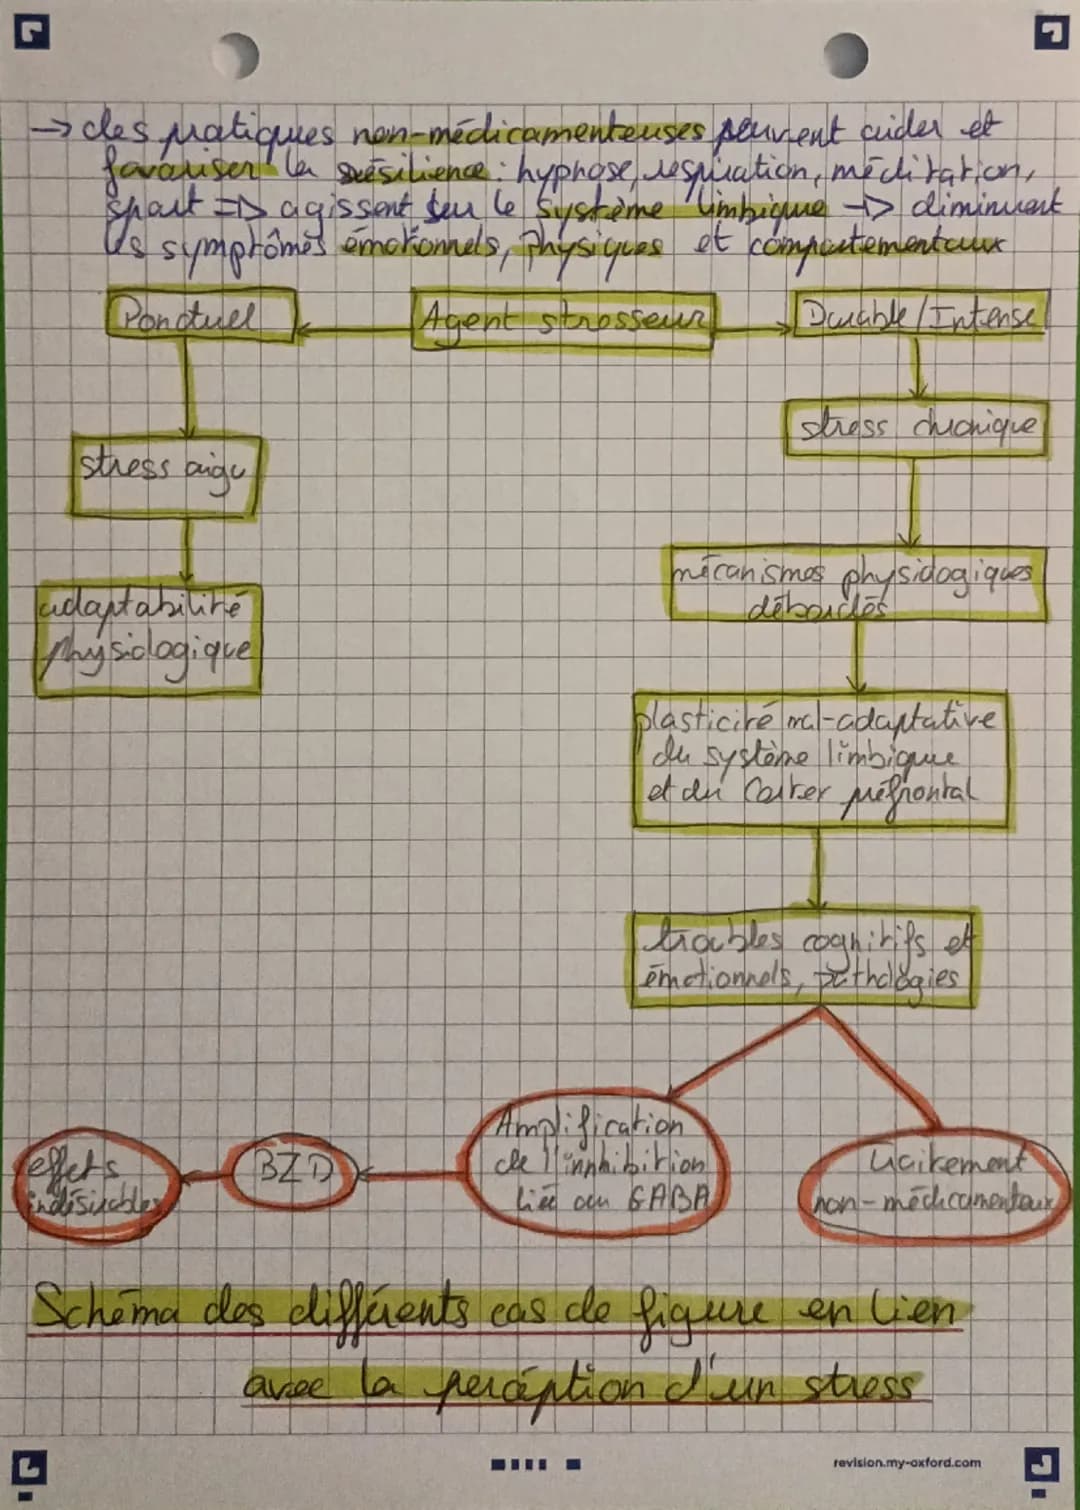 → des pratiques non-médicamenteuses peuvent aider et
favoriser la résilience : hypnose, respiration, méditation,
sport => agissent sur le système limbique → diminuent
les symptômes émotionnels, physiques et comportementaux
Ponctuel
Agent stresseur
Durable/Intense
stress chronique
stress aigu
mécanismes physiologiques
débordés
adaptabilité
physiologique
plasticité mal-adaptative
du système limbique
et du Cortex préfrontal
troubles cognitifs et
émotionnels, pathologies
Amplification
de l'innhibition
liée au GABA
BZD
effets
indésirables
traitement
non-médicamenteux
Schéma des différents cas de figure en lien
avec la perception d'un stress
revision.my-oxford.com